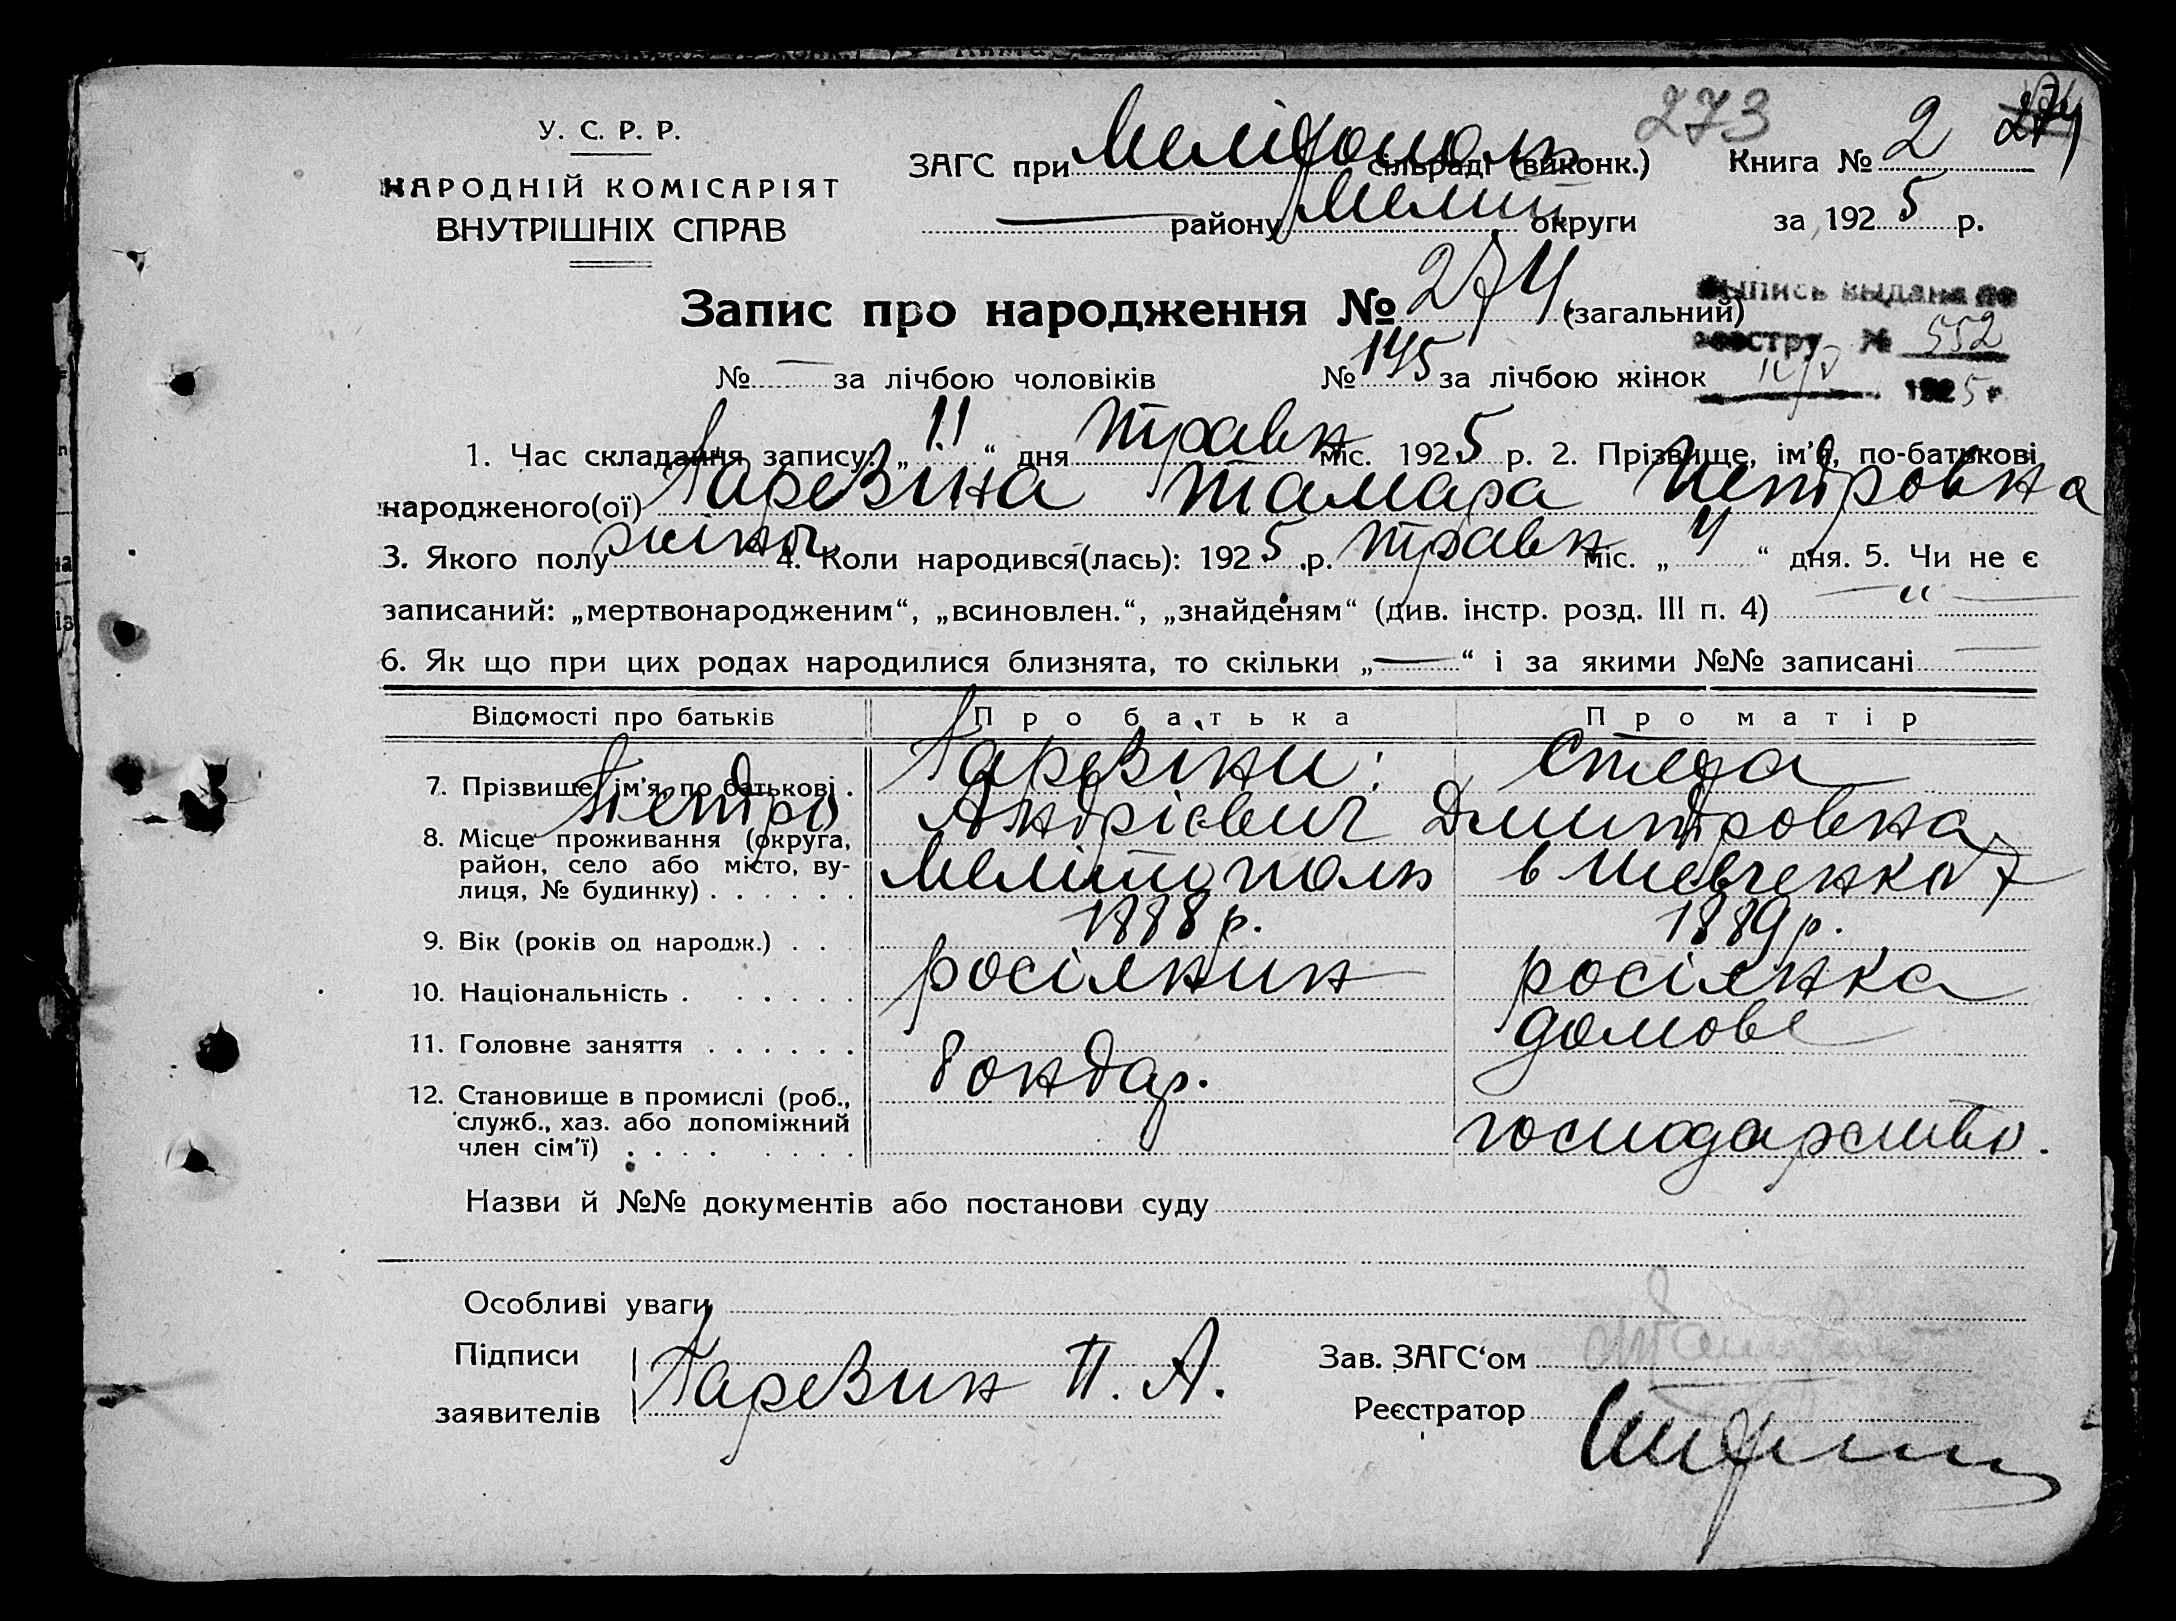 273 2 274
У. С. Р. Р.
НАРОДНІЙ КОМІСАРІЯТ
ВНУТРІШНІХ СПРАВ
ЗАГС при Мелітополь сільраді (виконк.) Книга № 2
— району Меліт округи за 1925 р.
Запис про народження № 274 (загальний)
Выпись выдана по
реестру № 552
1925 г
№ — за лічбою чоловіків № 145 за лічбою жінок
1. Час складання запису: „11“ дня травн міс. 1925 р. 2. Прізвище, ім'я, по-батькові
народженого(ої) Гаревіна Тамара Петровна
3. Якого полу жіноч. 4. Коли народився(лась): 1925 р. травн міс. „4“ дня. 5. Чи не є
записаний: „мертвонародженим“, „всиновлен.“, „знайденям“ (див. інстр. розд. III п. 4) — „ —
6. Як що при цих родах народилися близнята, то скільки „—“ і за якими №№ записані —
Відомості про батьків Про батька Про матір
7. Прізвище, ім'я, по батькові . Гаревіни: Стефа
Пьетро Андрієвич Дмитровна
8. Місце проживання (округа,
район, село або місто, вулиця, № будинку) . . . . . . Мелітополь в Шевченко 7
9. Вік (років од народж.) . . . 1888 р. 1889 р.
10. Національність . . . . . . росіянин росіянка
11. Головне заняття . . . . . . бондар. домове
12. Становище в промислі (роб.,
служб., хаз. або допоміжний
член сім'ї) . . . . . . . . господарство.
Назви й №№ документів або постанови суду
Особливі уваги
Підписи
заявителів Гаревин П. А.
Зав. ЗАГС'ом
Реєстратор